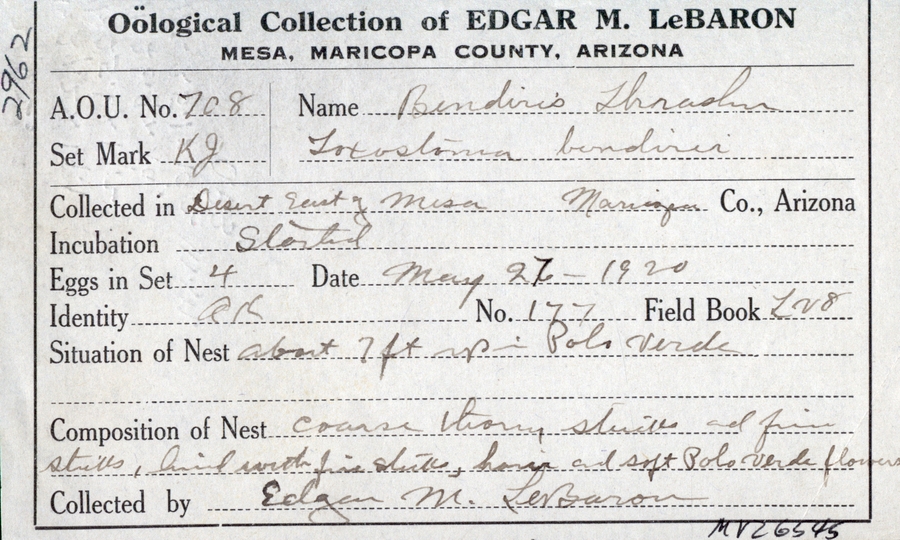 Oölogical Collection of EDGAR M. LeBARON
MESA, MARICOPA COUNTY, ARIZONA
2962
A.O.U. No. 708 Name Bendiris Thrasher
Set Mark KJ Toxostoma bendirei
Collected in Desert East of Mesa Maricopa Co., Arizona
Incubation Started
Eggs in Set 4 Date May 26 - 1920
Identity OK No. 177 Field Book
Situation of Nest about 7 ft up in Polo Verde
Composition of Nest coarse thorny sticks and fine
sticks, lined with fine sticks, hair and soft Polo Verde flowers
Collected by Edgar M. LeBaron
MVZ6545